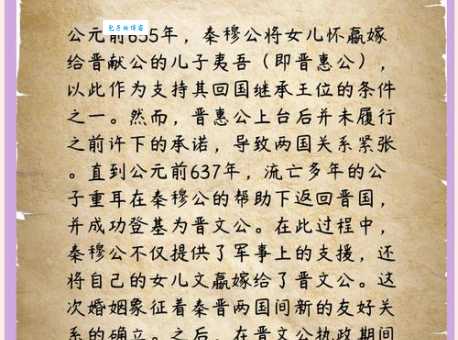 公元前655年，秦穆公将女儿怀嬴嫁
给晋献公的儿子夷吾（即晋惠公），
以此作为支持其回国继承王位的条件
之一。然而，晋惠公上台后并未履行
之前许下的承诺，导致两国关系紧张
。直到公元前637年，流亡多年的公
子重耳在秦穆公的帮助下返回晋国，
并成功登基为晋文公。在此过程中，
秦穆公不仅提供了军事上的支援，还
将自己的女儿文嬴嫁给了晋文公。这
次婚姻象征着秦晋两国间新的友好关
系的确立。之后，在晋文公执政期间